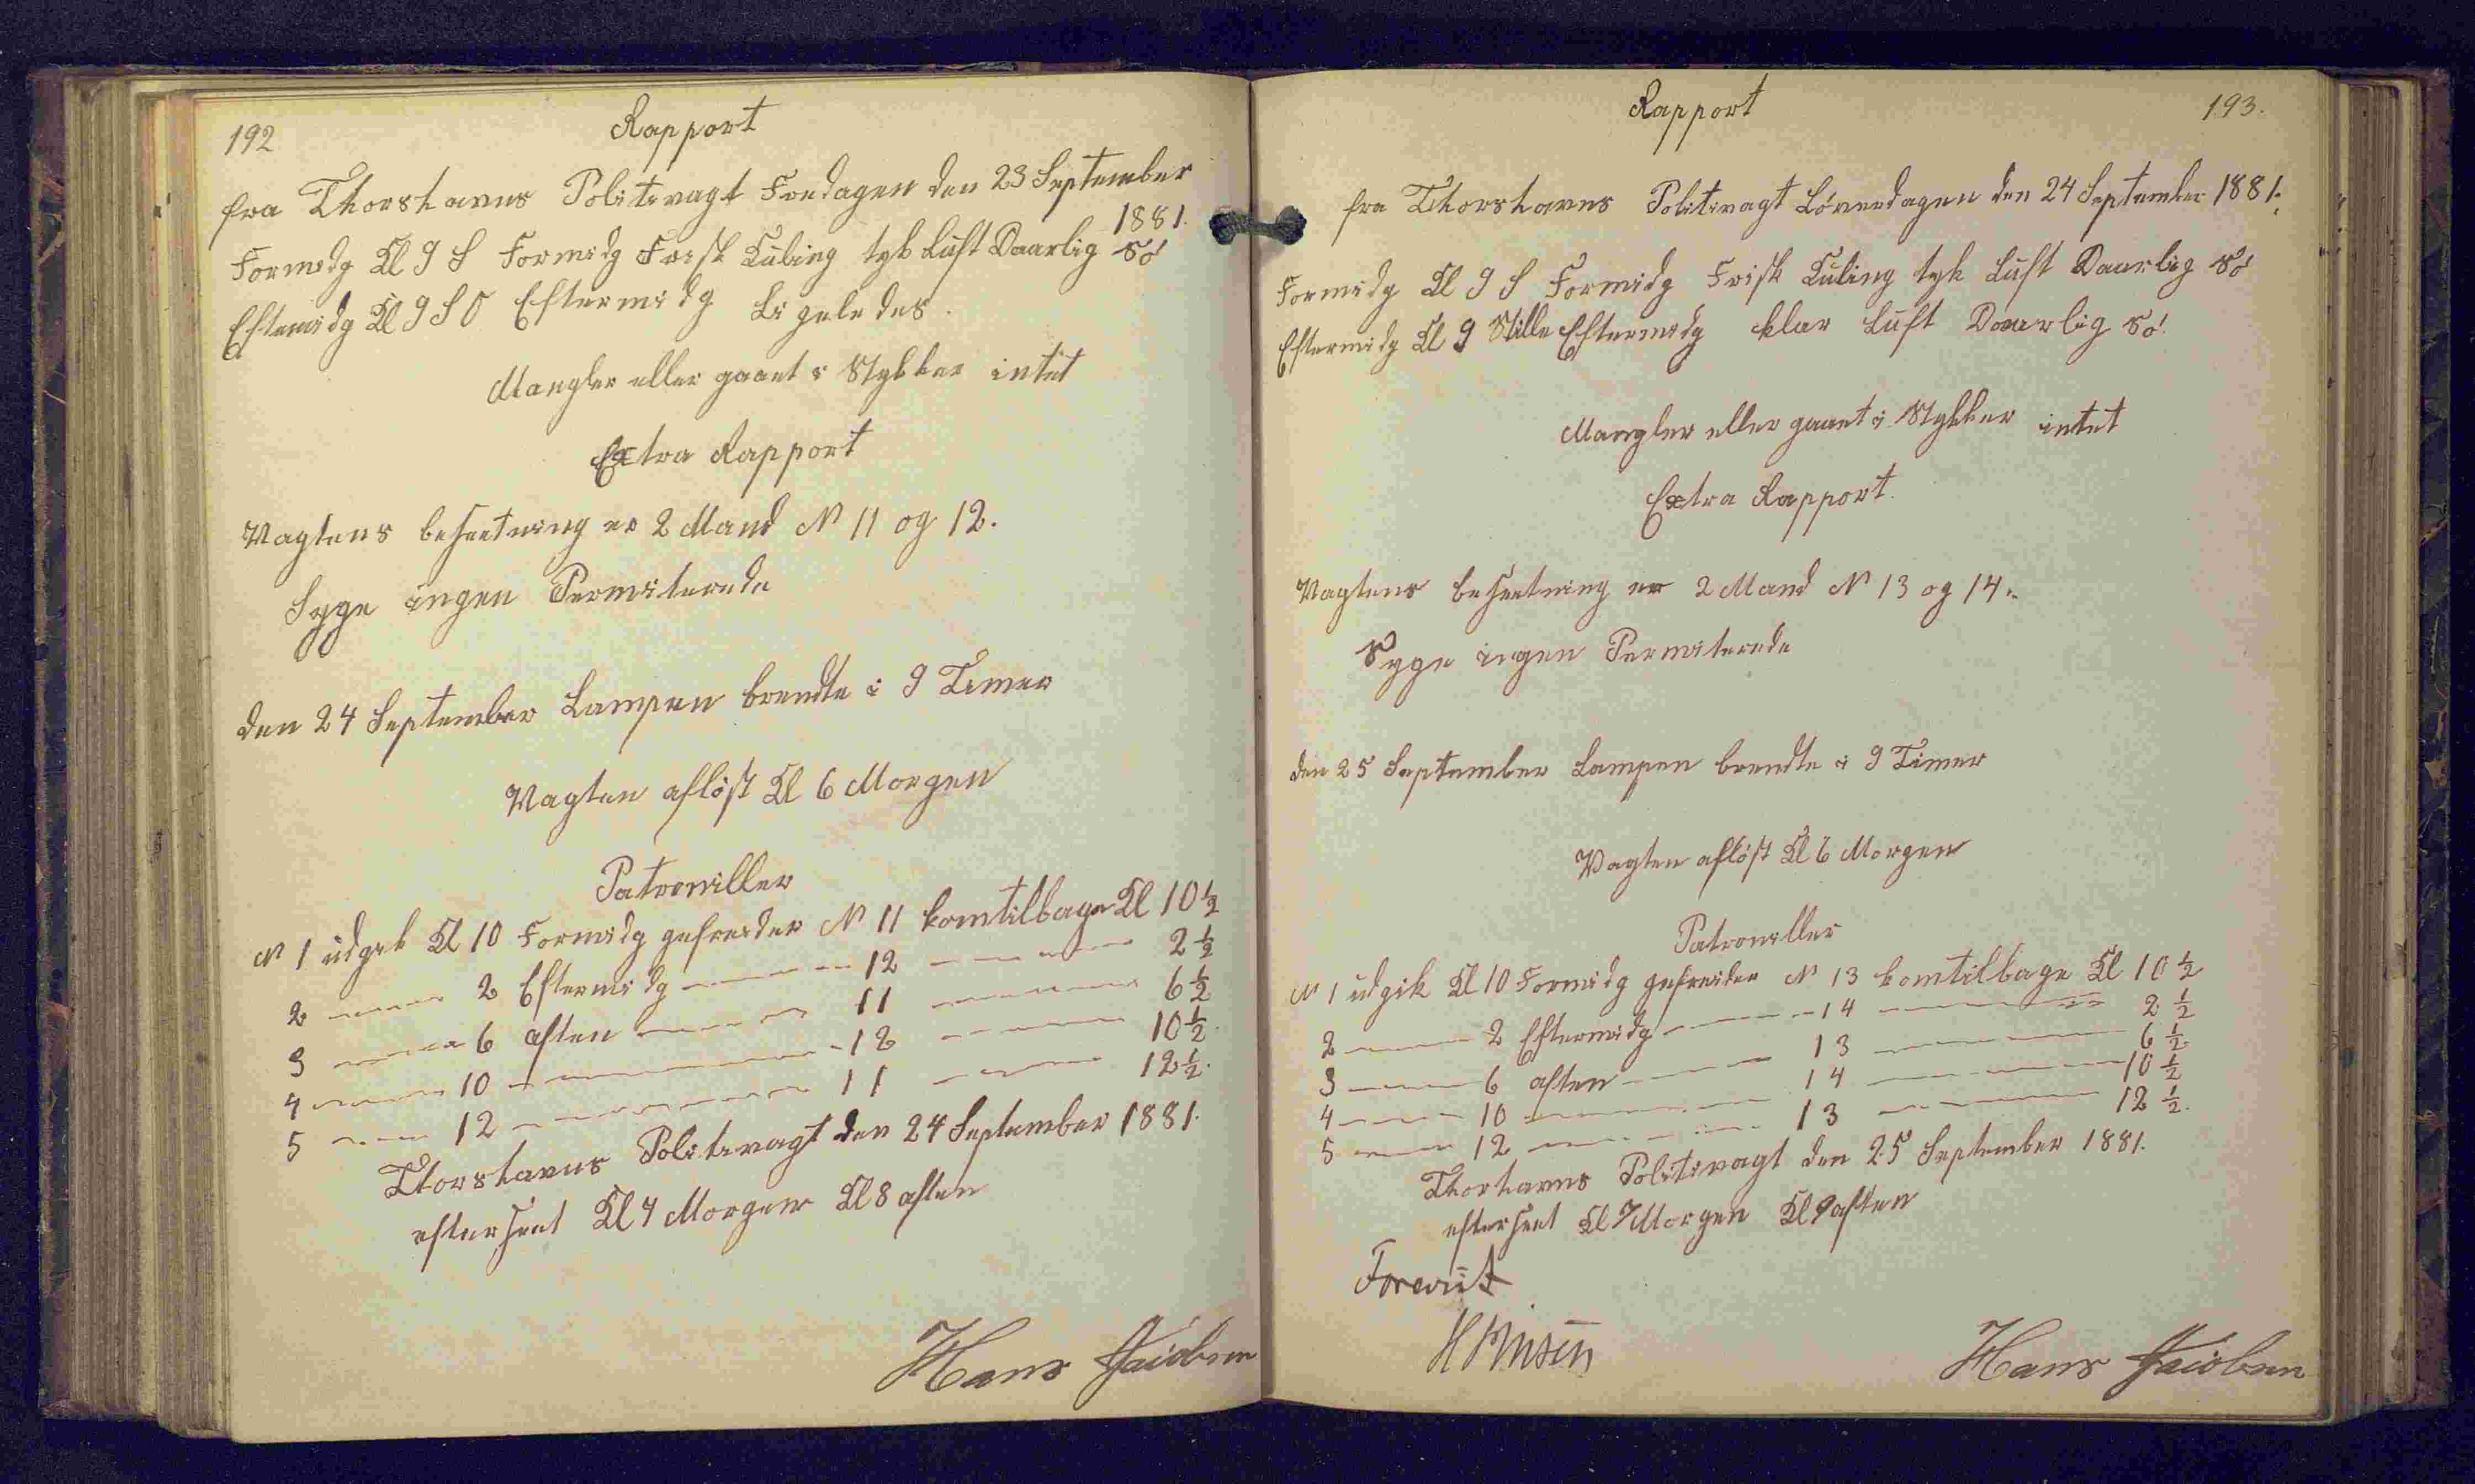 192
Rapport
fra Thorshavns Politivagt Fredagen den 23 September
1881.
Formidg Kl 9 S Formidg Frisk Kuling tyk Luft Daarlig Sö
Eftemidg Kl 9 S O Eftermidg Ligeledes.
Mangler eller gaaet i Stykker intet
Extra Rapport
Vagtens besætning er 2 Mand N 11 og 12.
Syge ingen Permiterede
den 24 September Lampen brendte i 9 Timer
Vagten aflöst Kl 6 Morgen
Patroniller
N 1 udgik Kl 10 Formidg gefreider N 11 komtilbage Kl 10 ½
2 — 2 Eftermidg — 12 — 2 ½
3 — 6 aften — 11 — 6 ½
4 — 10 — 12 — 10 ½
5 — 12 — 11 — 12 ½.
Thorshavns Politivagt den 24 September 1881.
efterseet Kl 7 Morgen Kl 8 aften
Hans Jacobsen
Rapport
193.
fra Thorshavns Politivagt Löverdagen den 24 September 1881.
Formidg Kl 9 S Formidg Frisk Kuling tyk Luft Daarlig Sö
Eftermidg Kl 9 Stille Eftermidg klar Luft Daarlig Sö.
Mangler eller gaaet i Stykker intet
Extra Rapport.
Vagtens besætning er 2 Mand N 13 og 14.
Syge ingen Permiterede
den 25 September Lampen brendte i 9 Timer
Vagten aflöst Kl 6 Morgen
Patroniller
N 1 udgik Kl 10 Formidg gefreider N 13 komtilbage Kl 10 ½
2 — 2 Eftermidg — 14 — 2 ½
3 — 6 aften — 13 — 6 ½
4 — 10 — 14 — 10 ½
5 — 12 — 13 — 12 ½.
Thorhavns Politivagt den 25 September 1881.
efterseet Kl 7 Morgen Kl 9 aften
Foreviist
Hans Jacobsen